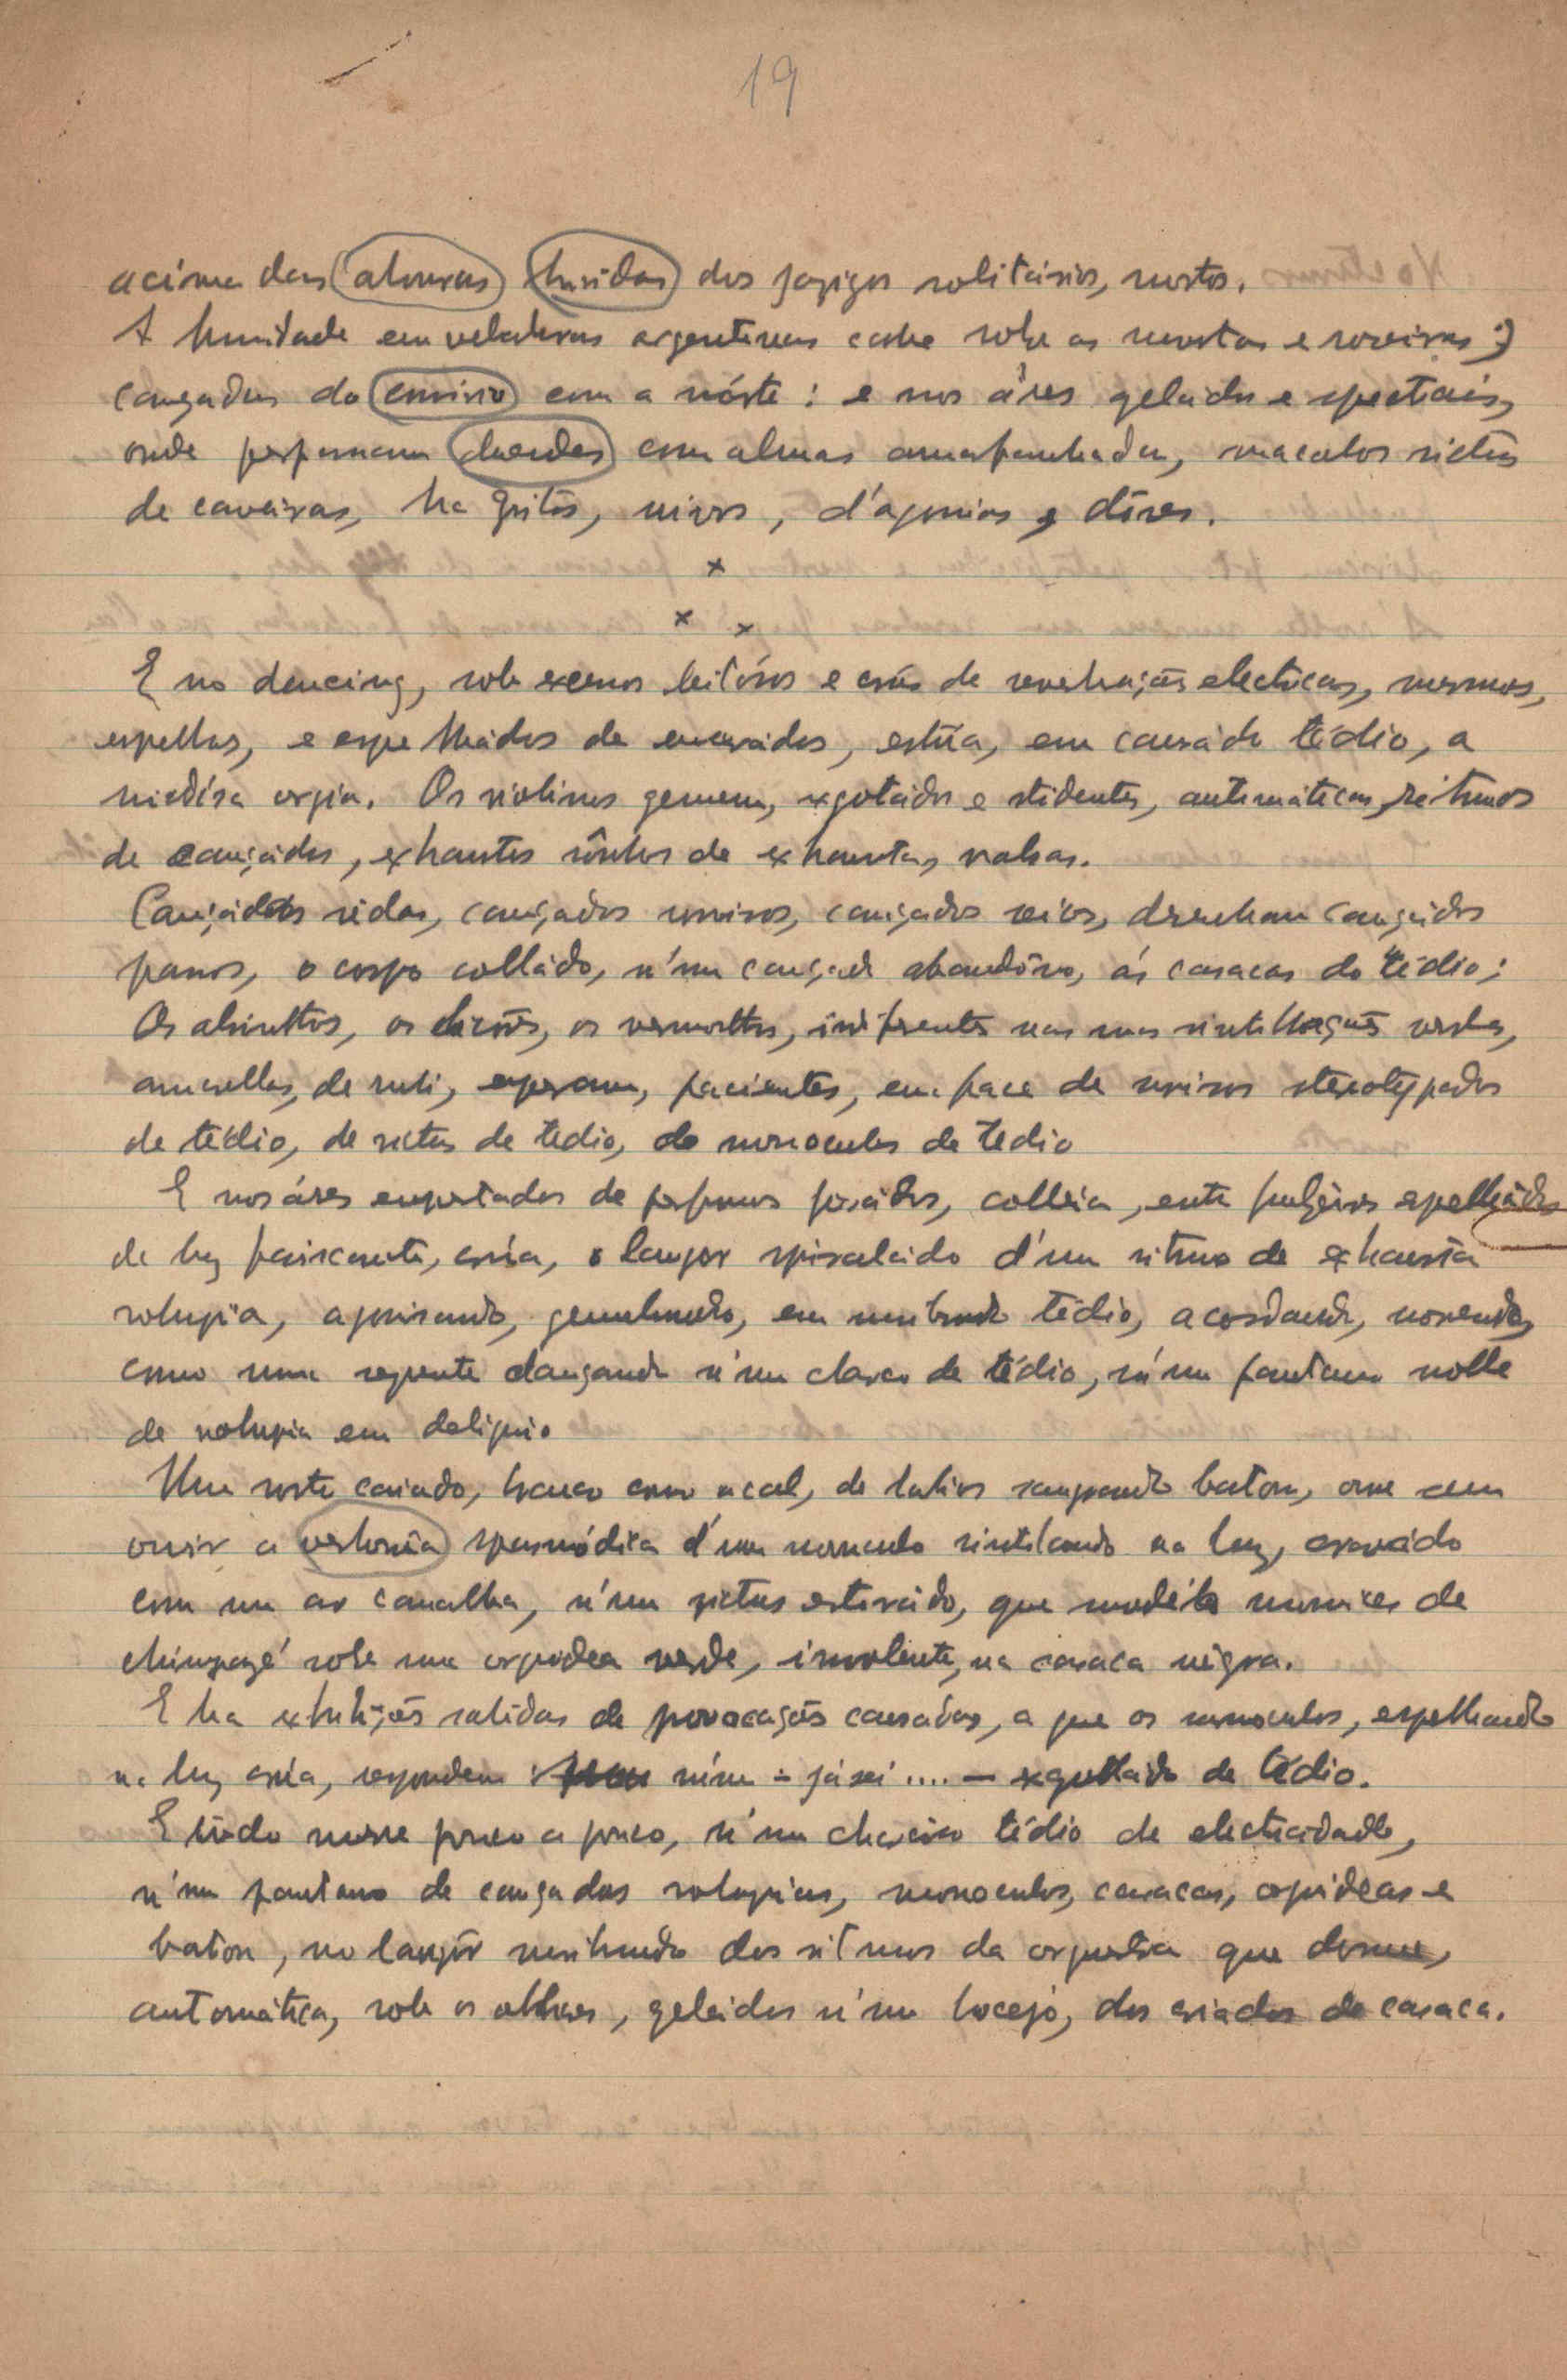 19
acima das alvuras húmidas dos jazigos solitários, mortos.
A humidade em veladuras argentinas cahe sobre as murtas e roseiras
cançadas do convivio com a mórte: e nos áres gelados e spectrais,
onde perpassam duendes com almas amarfanhadas, macabros rictus
de caveiras, ha gritos, uivos, d'agonias e dôres.
x
x x
E no dancing, sob leitósos e crús de electricas, mornos,
espelhos, e espelhados de encerados, estúa, em cansado tédio, a
orgia. Os violinos gemem, exgotados e stridentes, automáticos, ritmos
de cançados, exhaustos sônhos de exhaustas valsas.
Cançadas vidas, cançados sorrisos, cançados seios, desenham cançados
passos, o corpo collado, n'um cançado abandôno, ás casacas do tédio;
Os absinthos, os licôres, os vermouths, indiferentes nas suas sintillações verdes,
amarellas, de rubi, esperam, pacientes, em face de sorrisos stereotypados
de tédio, de rictus de tedio, de monoculos de tedio
E nos áres empestados de perfumes pesádos, colleia, entre fulgôres espelhádos
de luz faiscante, crúa, o langor spiralado d'um ritmo de exhausta
volupia, agonisando, gemebundo, em moribundo tédio, acordando, morrendo,
como uma serpente dançando n'um charco de tédio, n'um pantano molle
de volupia em deliquio.
Um rosto caiado, branco como a cal, de labios sangrando baton, ouve sem
ouvir a verborreia spasmódica d'um monoculo sintilando na luz, cravado
com um ar canalha, n'um rictus estorcido, que modéla momices de
chimpazé sobre uma orquidea verde, insolente, na casaca negra.
E ha exhibições sabidas de provocações cansadas, a que os monoculos, espelhando
na luz crúa, respondem n'um - já sei .... - exgottado de tédio.
E tudo morre pouco a pouco, n'um tédio de electricidade,
n'um pantano de cançadas volupias, monoculos, casacas, orquideas e
baton, no langôr moribundo dos ritmos da orquestra que dorme,
automática, sob os olhares, gelados n'um bocejo, dos criados de casaca.